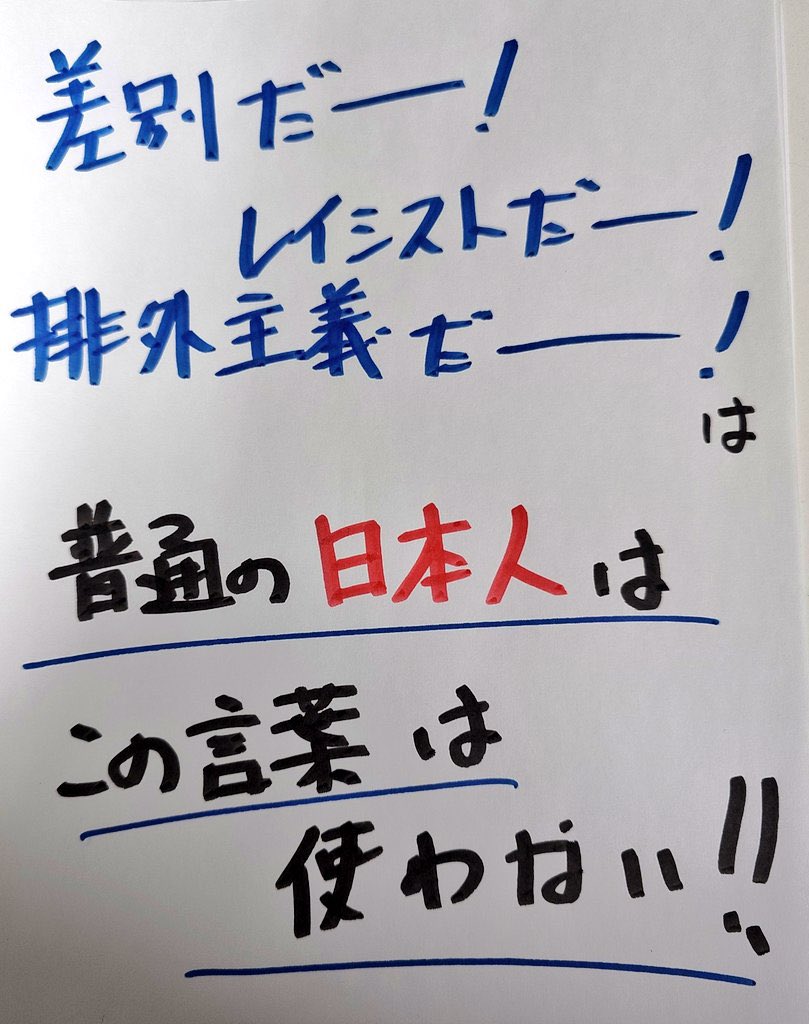 差別だー!
レイシストだー!
排外主義だー!
は
普通の日本人は
この言葉は
使わない!!